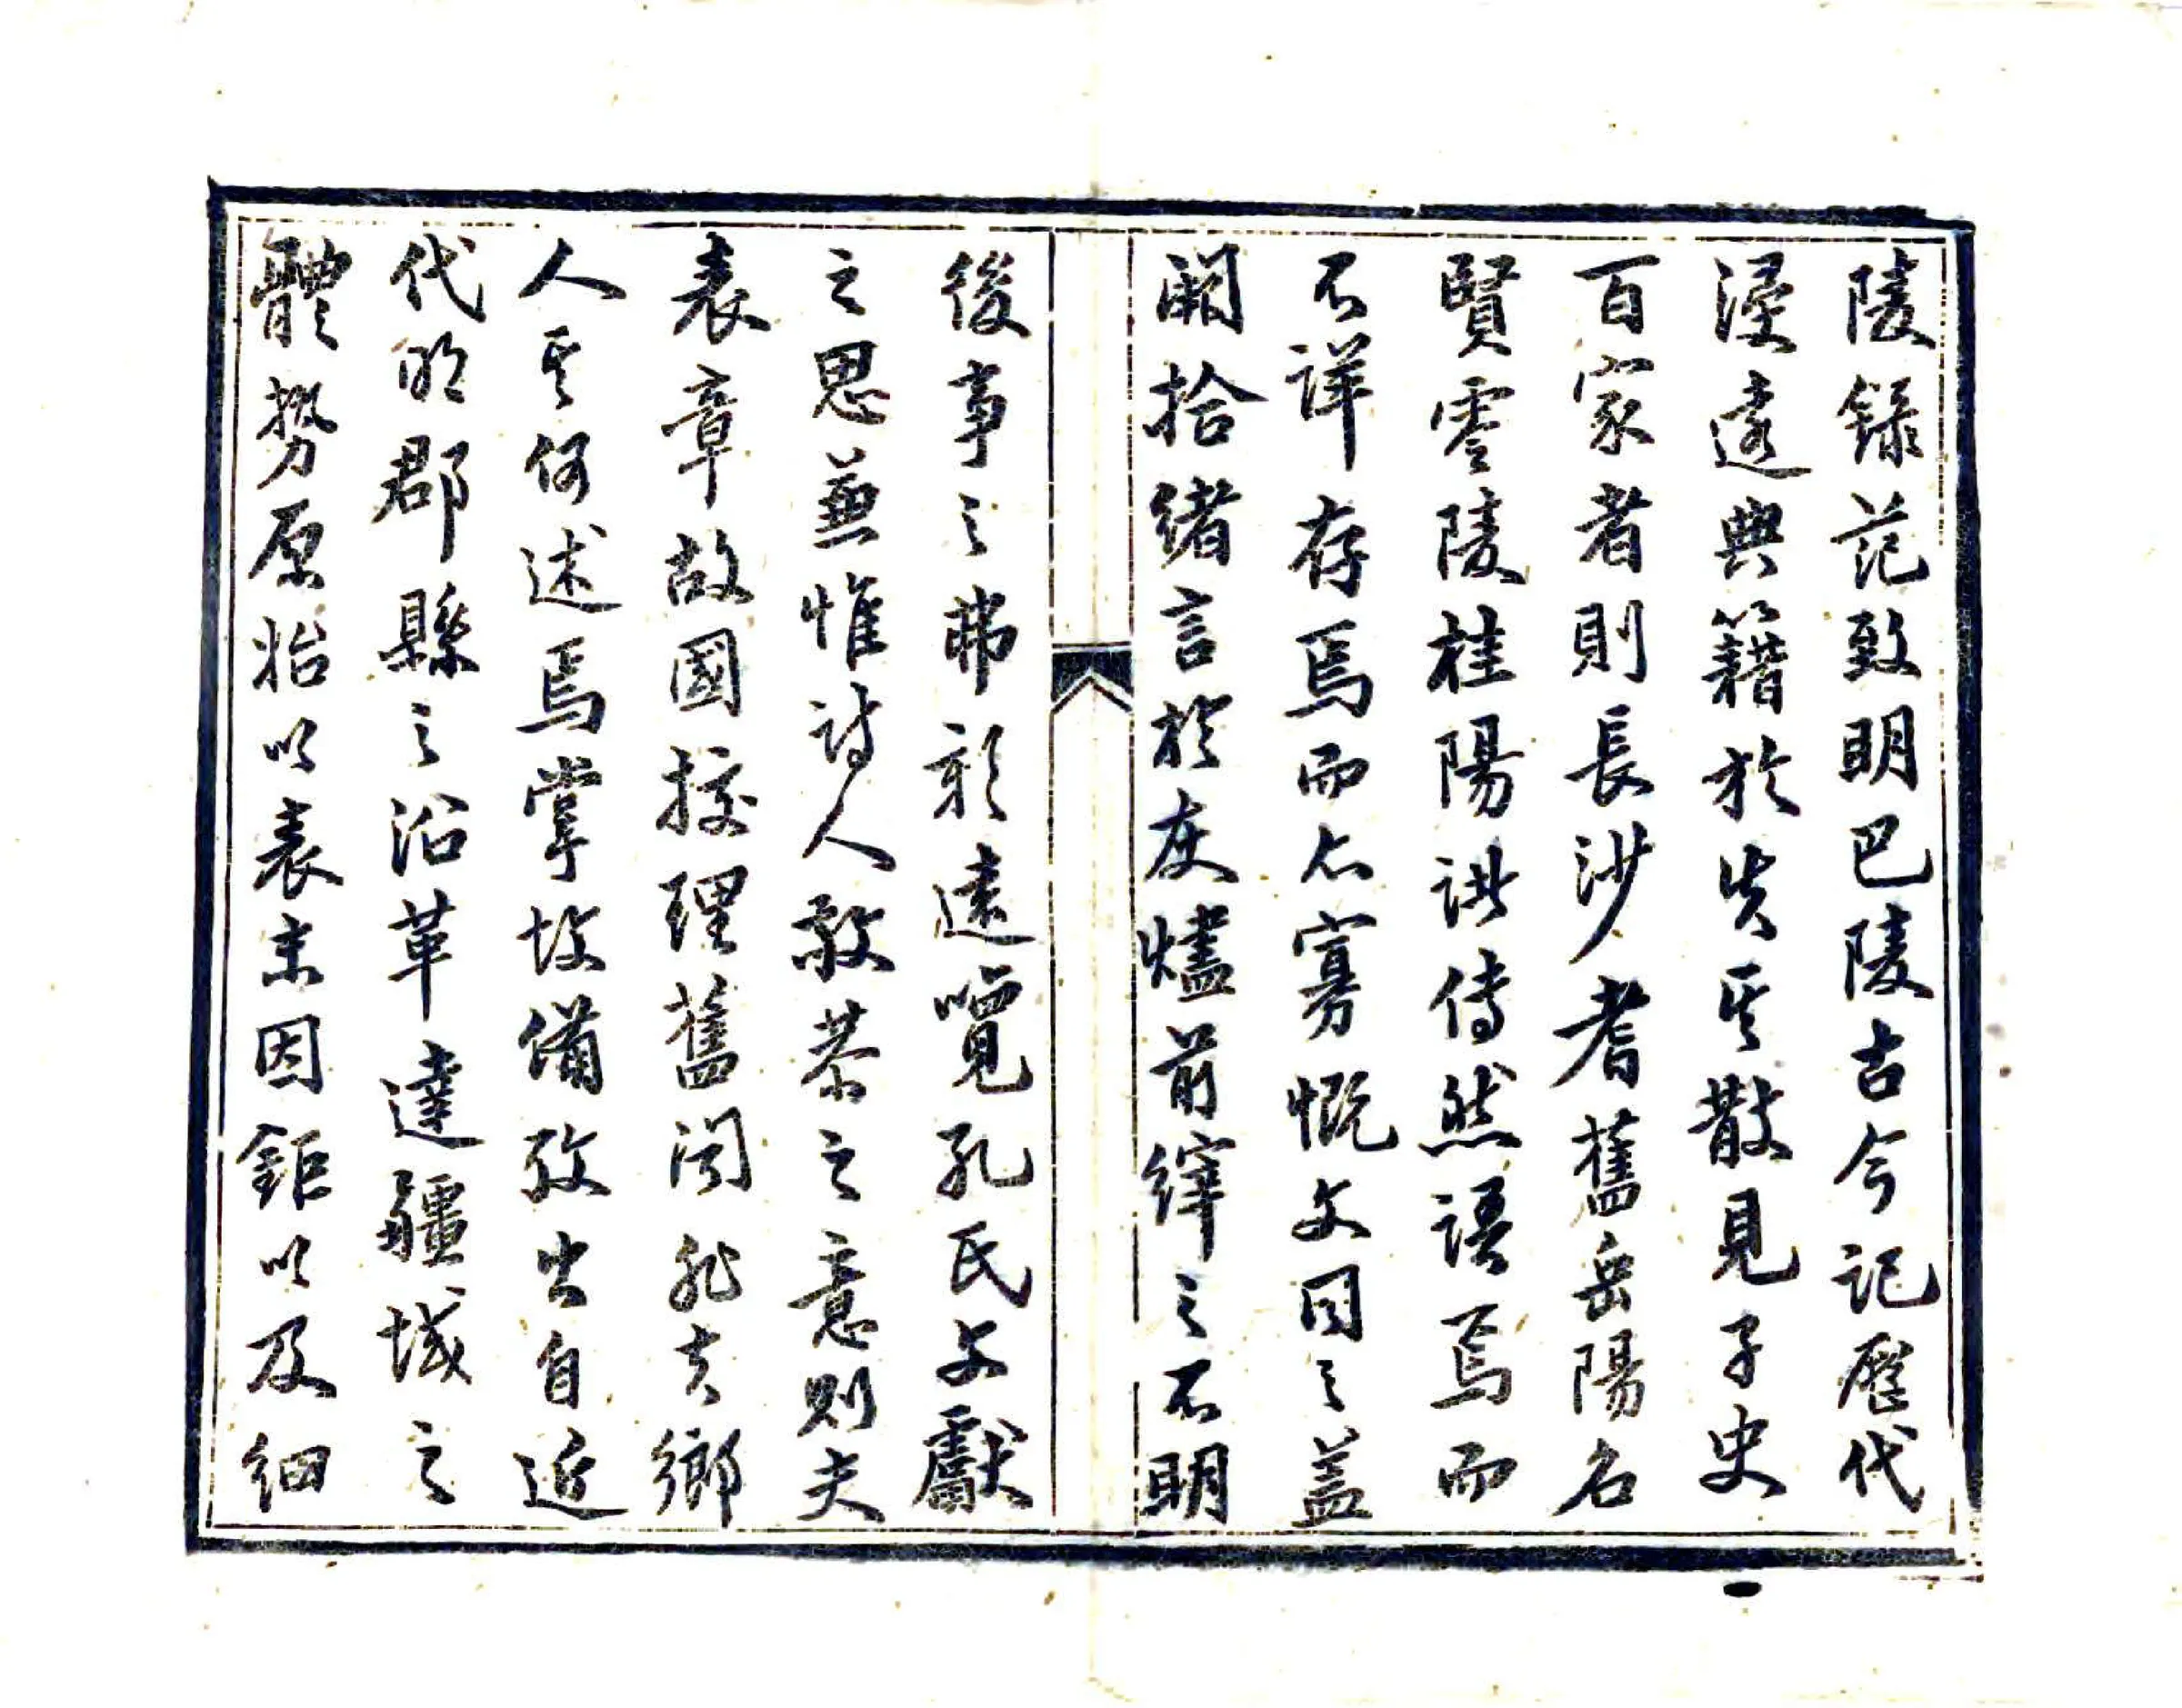 陵錄范致明巴陵古今記歷代
寖遠典籍放失其散見子史
百家者則長沙耆舊岳陽名
賢零陵桂陽諸傳然語焉而
不詳存焉而亦寡慨文同之蓋
闕拾緒言於灰燼前緯之不明
後事之弗彰遠覽孔氏文獻
之思兼惟詩人敬恭之意則夫
表章故國挍理舊聞非吾鄉
人其何述焉掌故備攷出自近
代明郡縣之沿革達疆域之
體勢原始以表末因鉅以及細